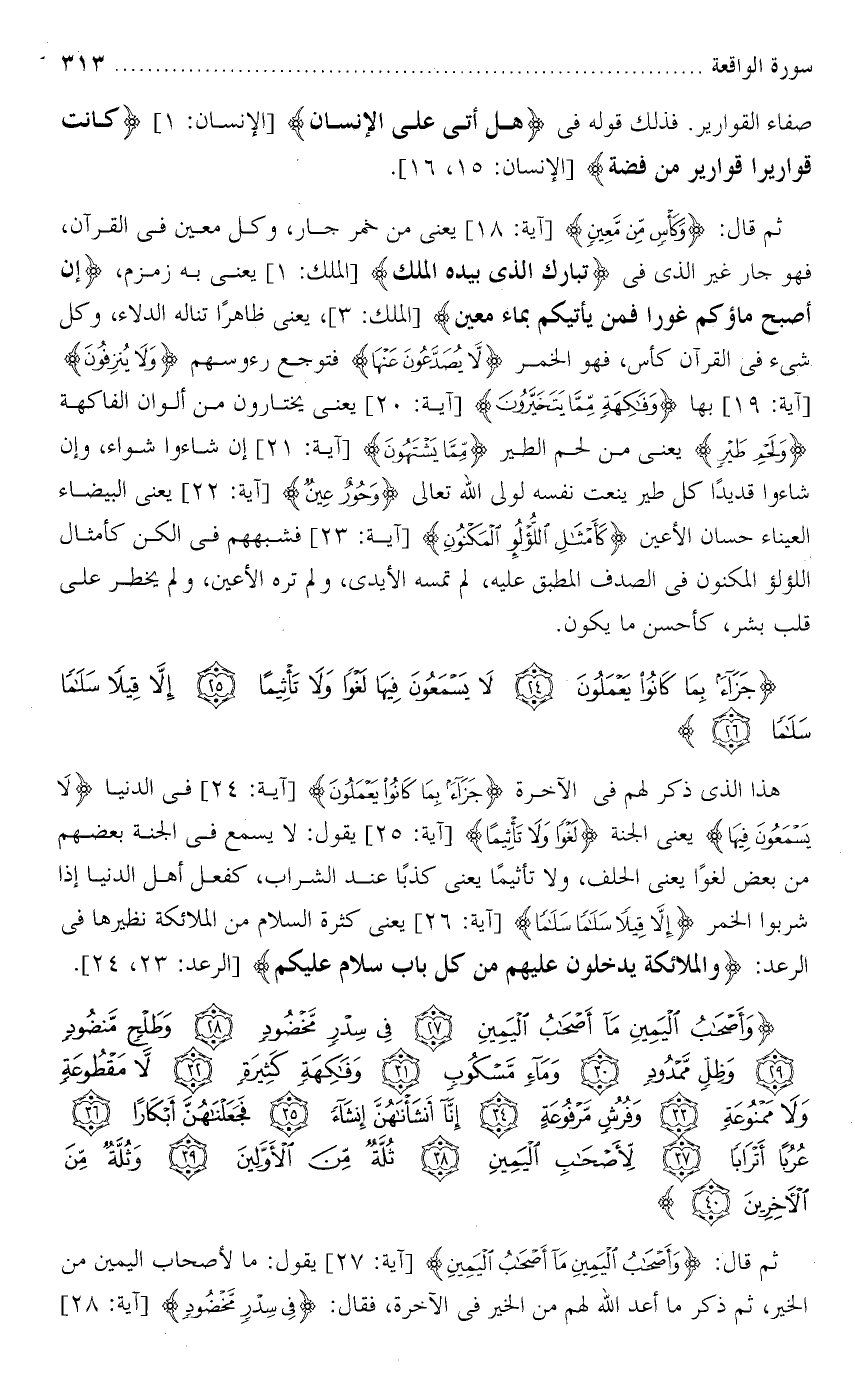 سورة الواقعة ........................................................................ ٣١٣
صفاء القوارير. فذلك قوله فى ﴿هل أتى على الإنسان﴾ [الإنسان: ١] ﴿كانت
قواريرا قوارير من فضة﴾ [الإنسان: ١٥، ١٦].
ثم قال: ﴿وَكَأْسٍ مِّن مَّعِينٍ﴾ [آية: ١٨] يعنى من خمر جار، وكل معين فى القرآن،
فهو جار غير الذى فى ﴿تبارك الذى بيده الملك﴾ [الملك: ١] يعنى به زمزم، ﴿إن
أصبح ماؤكم غورا فمن يأتيكم بماء معين﴾ [الملك: ٣]، يعنى ظاهرًا تناله الدلاء، وكل
شىء فى القرآن كأس، فهو الخمر ﴿لَّا يُصَدَّعُونَ عَنْهَا﴾ فتوجع رءوسهم ﴿وَلَا يُنزِفُونَ﴾
[آية: ١٩] بها ﴿وَفَاكِهَةٍ مِّمَّا يَتَخَيَّرُونَ﴾ [آية: ٢٠] يعنى يختارون من ألوان الفاكهة
﴿وَلَحْمِ طَيْرٍ﴾ يعنى من لحم الطير ﴿مِّمَّا يَشْتَهُونَ﴾ [آية: ٢١] إن شاءوا شواء، وإن
شاءوا قديدًا كل طير ينعت نفسه لولى الله تعالى ﴿وَحُورٌ عِينٌ﴾ [آية: ٢٢] يعنى البيضاء
العيناء حسان الأعين ﴿كَأَمْثَٰلِ اللُّؤْلُوِٕ الْمَكْنُونِ﴾ [آية: ٢٣] فشبههم فى الكن كأمثال
اللؤلؤ المكنون فى الصدف المطبق عليه، لم تمسه الأيدى، ولم تره الأعين، ولم يخطر على
قلب بشر، كأحسن ما يكون.
﴿جَزَآءًۢ بِمَا كَانُوا۟ يَعْمَلُونَ ٢٤ لَا يَسْمَعُونَ فِيهَا لَغْوًا وَلَا تَأْثِيمًا ٢٥ إِلَّا قِيلًا سَلَٰمًا
سَلَٰمًا ٢٦﴾
هذا الذى ذكر لهم فى الآخرة ﴿جَزَآءًۢ بِمَا كَانُوا۟ يَعْمَلُونَ﴾ [آية: ٢٤] فى الدنيا ﴿لَا
يَسْمَعُونَ فِيهَا﴾ يعنى الجنة ﴿لَغْوًا وَلَا تَأْثِيمًا﴾ [آية: ٢٥] يقول: لا يسمع فى الجنة بعضهم
من بعض لغوًا يعنى الحلف، ولا تأثيمًا يعنى كذبًا عند الشراب، كفعل أهل الدنيا إذا
شربوا الخمر ﴿إِلَّا قِيلًا سَلَٰمًا سَلَٰمًا﴾ [آية: ٢٦] يعنى كثرة السلام من الملائكة نظيرها فى
الرعد: ﴿والملائكة يدخلون عليهم من كل باب سلام عليكم﴾ [الرعد: ٢٣، ٢٤].
﴿وَأَصْحَٰبُ الْيَمِينِ مَآ أَصْحَٰبُ الْيَمِينِ ٢٧ فِى سِدْرٍ مَّخْضُودٍ ٢٨ وَطَلْحٍ مَّنضُودٍ
٢٩ وَظِلٍّ مَّمْدُودٍ ٣٠ وَمَآءٍ مَّسْكُوبٍ ٣١ وَفَٰكِهَةٍ كَثِيرَةٍ ٣٢ لَّا مَقْطُوعَةٍ
وَلَا مَمْنُوعَةٍ ٣٣ وَفُرُشٍ مَّرْفُوعَةٍ ٣٤ إِنَّآ أَنشَأْنَٰهُنَّ إِنشَآءً ٣٥ فَجَعَلْنَٰهُنَّ أَبْكَارًا ٣٦
عُرُبًا أَتْرَابًا ٣٧ لِّأَصْحَٰبِ الْيَمِينِ ٣٨ ثُلَّةٌ مِّنَ الْأَوَّلِينَ ٣٩ وَثُلَّةٌ مِّنَ
الْـَٔاخِرِينَ ٤٠﴾
ثم قال: ﴿وَأَصْحَٰبُ الْيَمِينِ مَآ أَصْحَٰبُ الْيَمِينِ﴾ [آية: ٢٧] يقول: ما لأصحاب اليمين من
الخير، ثم ذكر ما أعد الله لهم من الخير فى الآخرة، فقال: ﴿فِى سِدْرٍ مَّخْضُودٍ﴾ [آية: ٢٨]